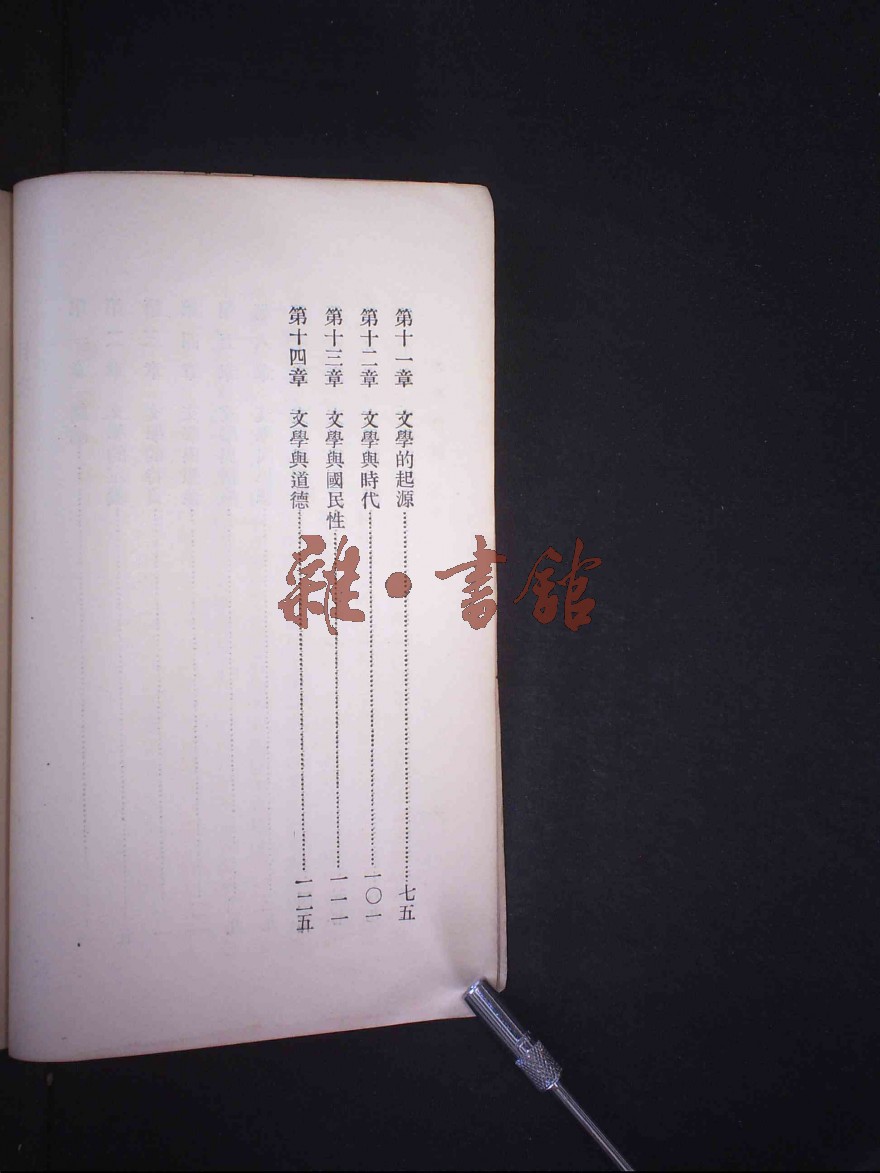 第十一章　文學的起源……七五
第十二章　文學與時代……一〇一
第十三章　文學與國民性……一一一
第十四章　文學與道德……一二五
雜·書館